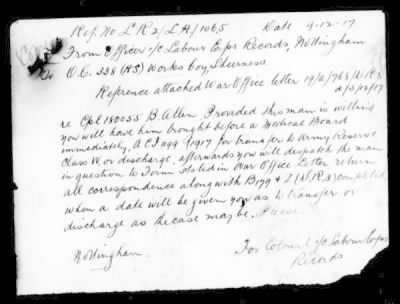 Copy
Ref. No LR2/LA/1065 Date 9-12-17
From Officer i/c Labour Corps Records, Nottingham
To O.C. 338 (HS) Works Coy, Sheerness.
Reference attached War Office letter 19/2/768/N.R.3
d/3/12/17
re Cpl 180055 B. Allen. Provided this man is willing
you will have him brought before a Medical Board
immediately, ACI 1499/1917 for transfer to Army Reserve
Class W or discharge, afterwards you will despatch the man
in question to Form stated in War Office Letter return
all correspondence along with B179 & Z (N.R.3) completed
when a date will be given you as to transfer or
discharge as the case may be. Please
Nottingham.
For Colonel i/c Labour Corps
Records